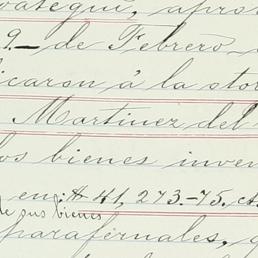 oategui, apro
9_ de Febrero
icaron á la stor
Martinez del
los bienes inven
en: $ 41,273-75. ct
de sus bienes
parafernales,